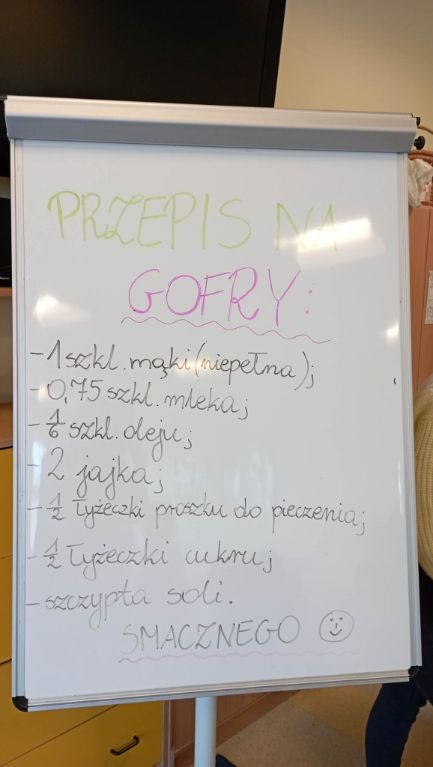 PRZEPIS NA
GOFRY:
- 1 szkl. mąki (niepełna);
- 0,75 szkl. mleka;
- 1/6 szkl. oleju;
- 2 jajka;
- 1/2 łyżeczki proszku do pieczenia;
- 1/2 łyżeczki cukru;
- szczypta soli.
SMACZNEGO